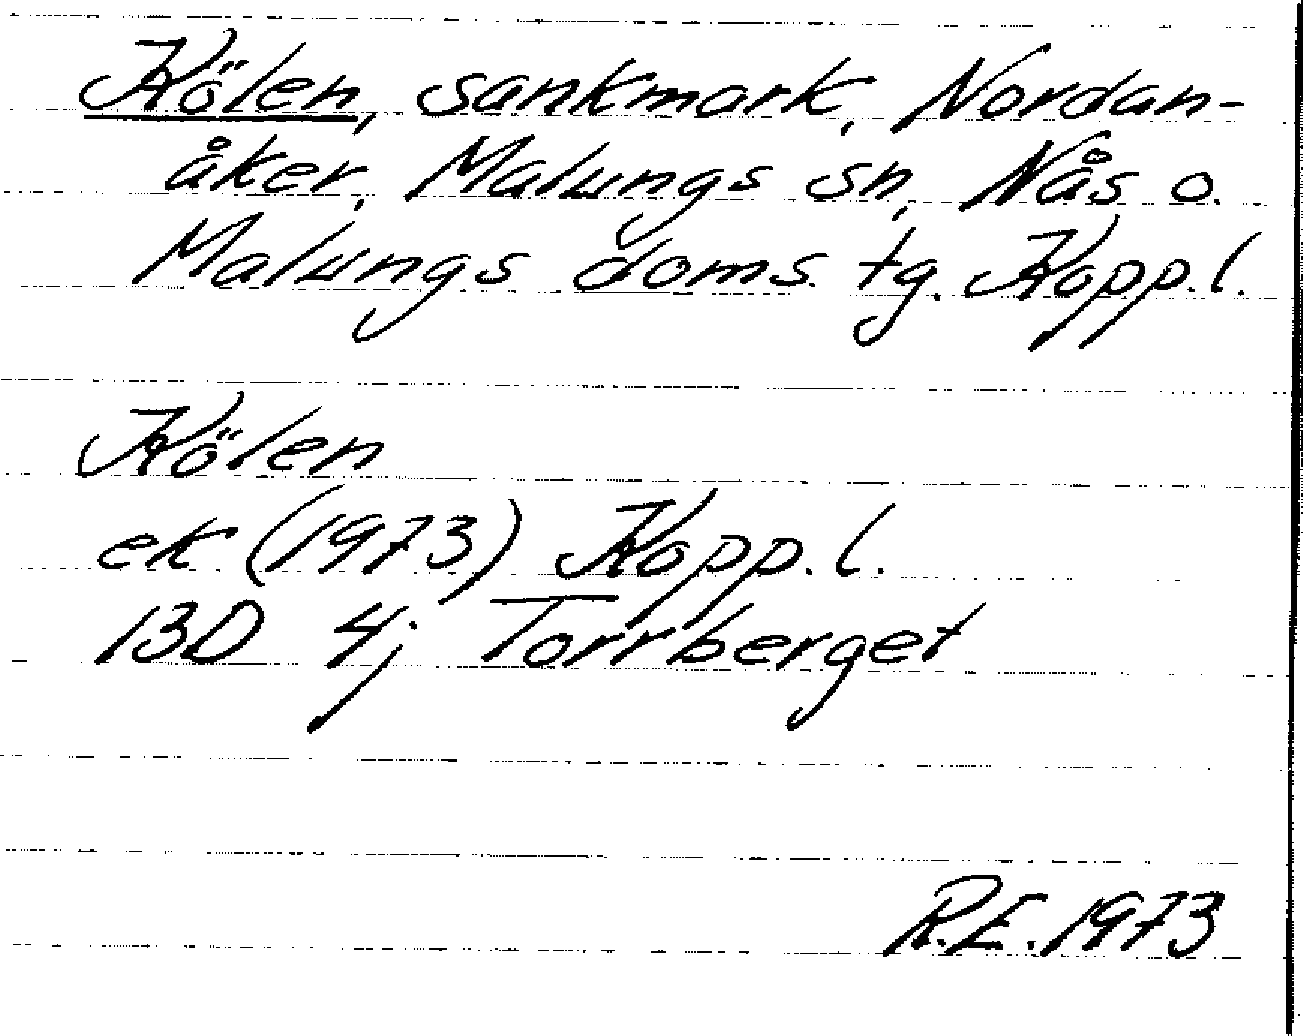 Kölen, sankmark, Nordan-
åker, Malungs sn, Nås o.
Malungs doms. tg. Kopp. l.
Kölen
ek (1973) Kopp. l.
13D 4j Torrberget
R.E. 1973